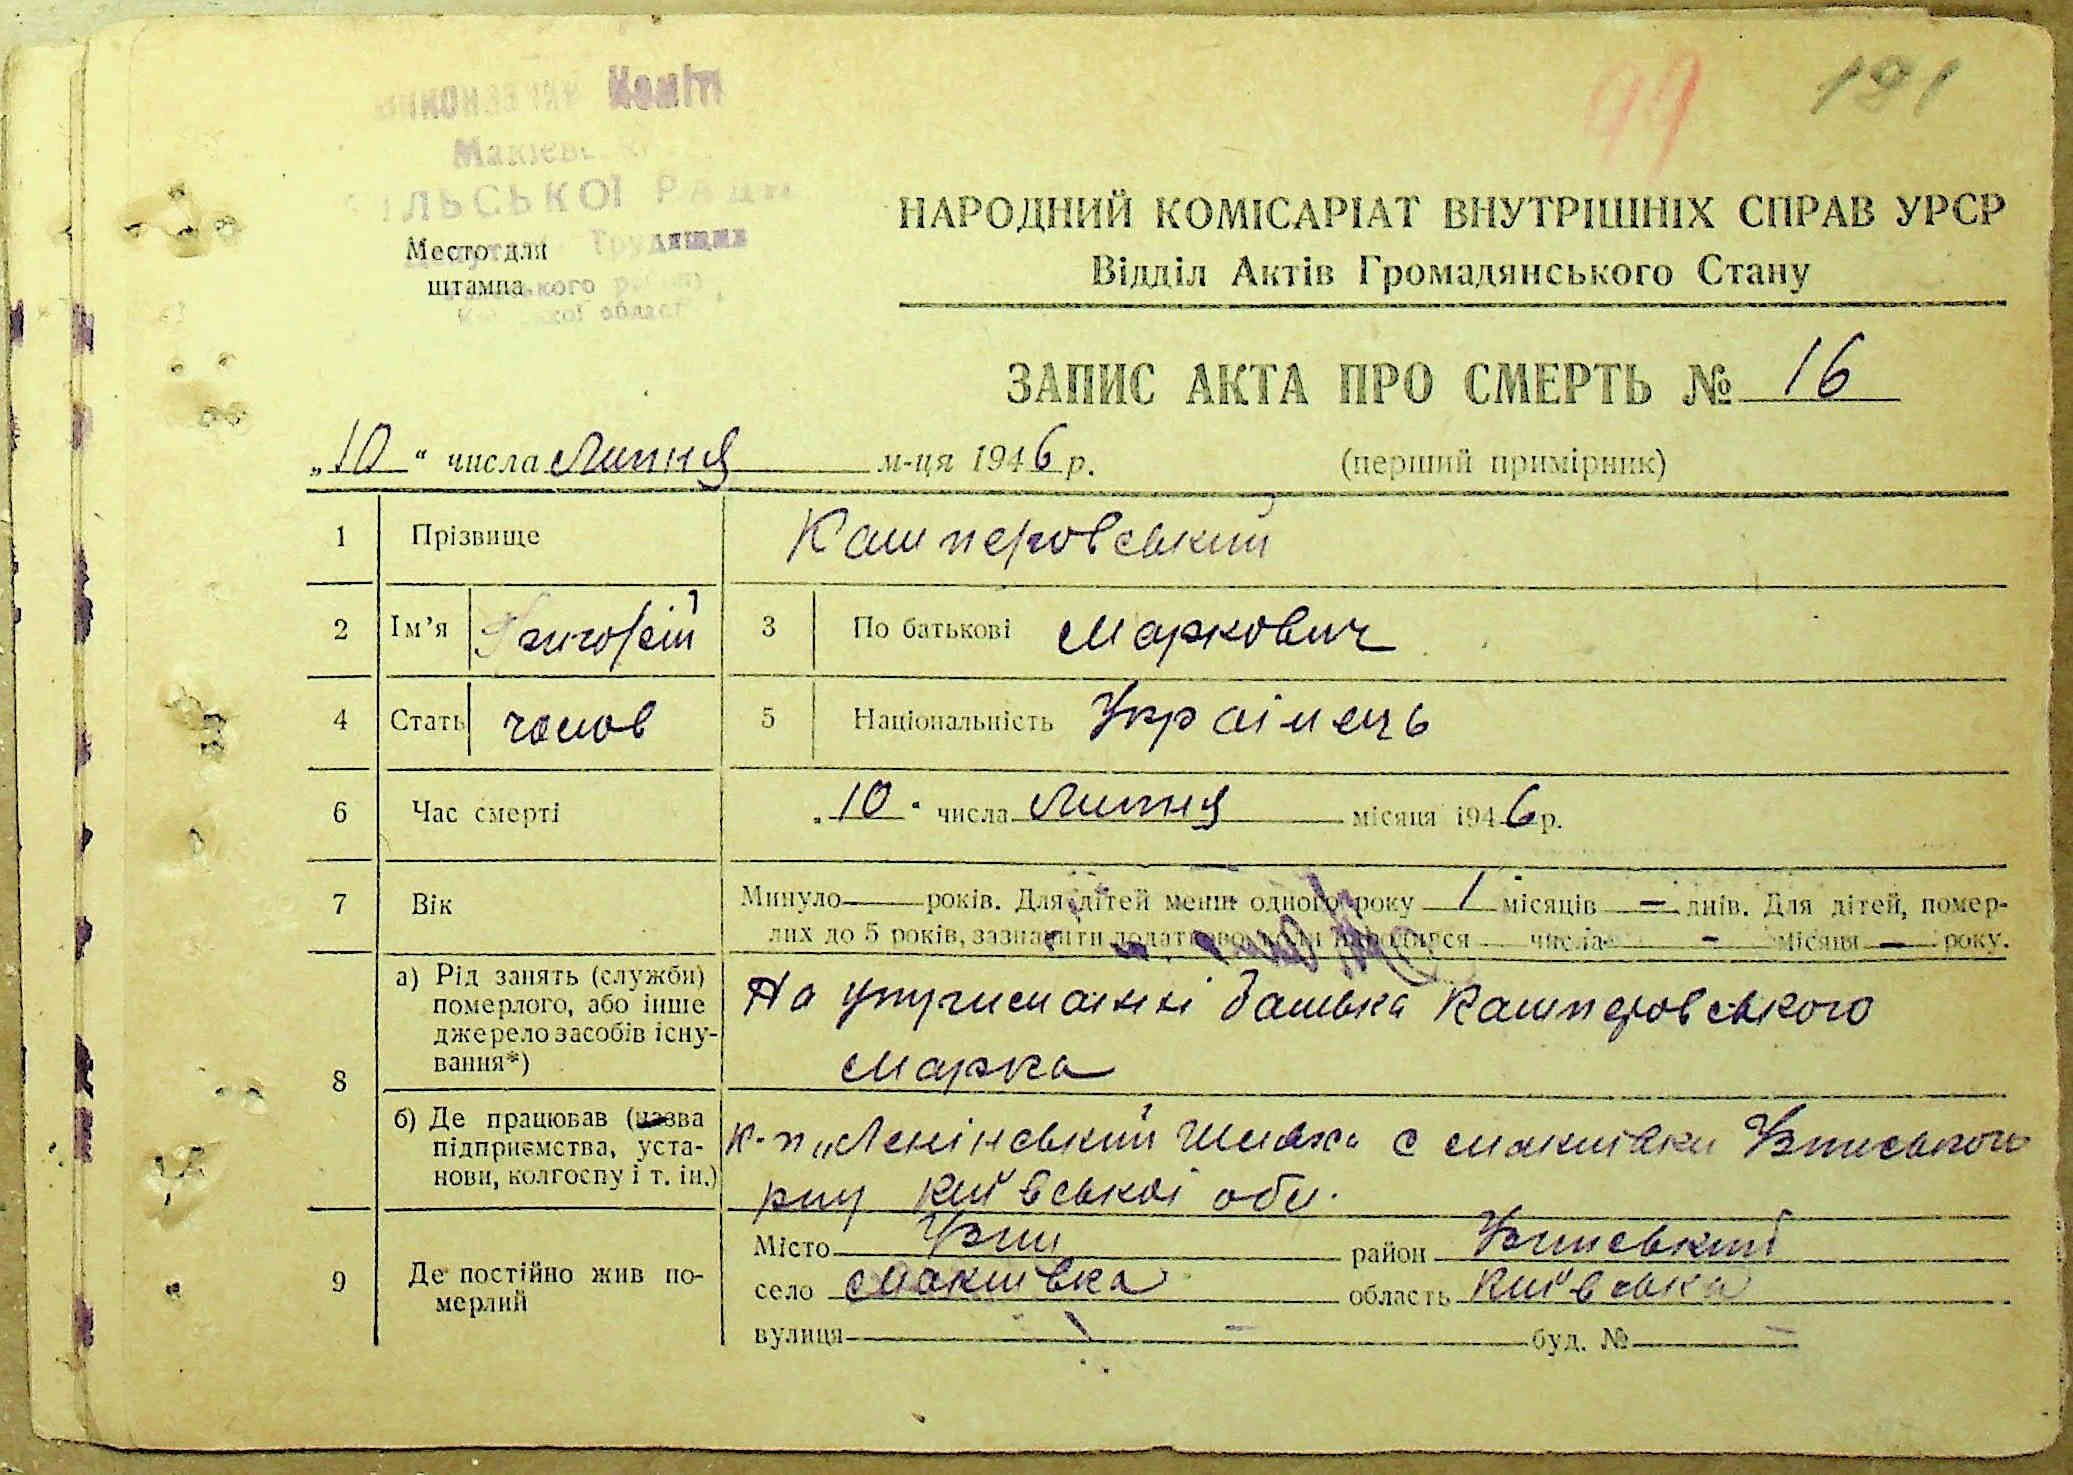 99 191
Коміт
Макіевс
СІЛЬСЬКОЇ РАДИ
Трудящих
області
Место для
штампа
НАРОДНИЙ КОМІСАРІАТ ВНУТРІШНІХ СПРАВ УРСР
Відділ Актів Громадянського Стану
ЗАПИС АКТА ПРО СМЕРТЬ № 16
„10“ числа Липня м-ця 1946 р. (перший примірник)
1 Прізвище Кашперовський
2 Ім’я Григорій 3 По батькові Маркович
4 Стать чолов 5 Національність Украінець
6 Час смерті „10“ числа Липня місяця 1946 р.
7 Вік Минуло — років. Для дітей менш одного року 1 місяців — днів. Для дітей, помер-
лих до 5 років, зазначити додатково, коли народився числа - місяця — року.
8 а) Рід занять (служби)
померлого, або інше
джерело засобів існу-
вання*)
На утриманні батька Кашперовського
Марка
б) Де працював (назва
підприємства, уста-
нови, колгоспу і т. ін.)
к-п „Ленінський Шлях“ с Макиівки
р-ну Київської обл.
9 Де постійно жив по-
мерлий
Місто район
село Макиівка область Київська
вулиця - буд. № -